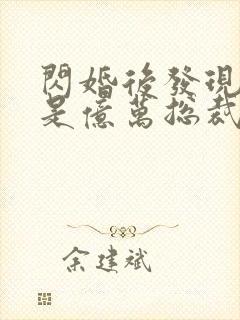 閃婚後發現
是億萬總裁
余建斌